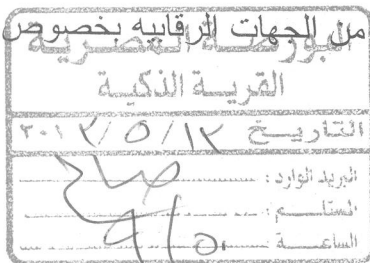 من الجهات الرقابيه بخصوص
البورصة المصرية
القرية الذكية
التاريخ ١٢/٥/٢٠١٢
البريد الوارد :
المستلم :
الساعة :